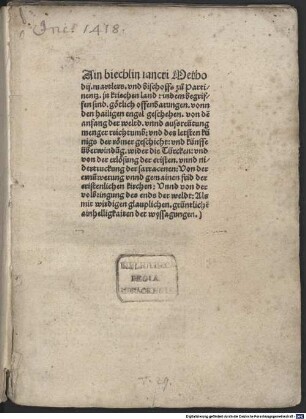 Inc 1418.
Ain biechlin sancti Metho
dij. martlers. vnd bischoffs zů Parti-
nentz. in kriechen land: in dem begriff-
fen sind. götlich offenbarungen. vonn
den hailigen engel geschehen. von dē
anfang der welt. vnnd außreüttung
menger reichtumb: vnd des letsten kü
nigs der römer geschicht: vnd künffti
überwindūg. wider die Türcken: vnd
von der erlösung der cristen. vnnd ni-
dertruckung der sarracenen: Von der
ernüwerung vnnd gemainen frid der
cristenlichen kirchen: Vnnd von der
volbringung des ends der welt: Als
mit wirdigen glauplichen. grüntlichē
ainhelligkaiten der wyssagungen.)
BIBLIOTHECA
REGIA
MONACENSIS